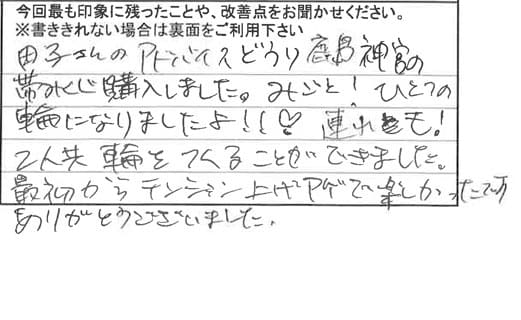 今回最も印象に残ったことや、改善点をお聞かせください。
※書ききれない場合は裏面をご利用下さい
田子さんのアドバイスどうり鹿島神宮の
帯みくじ購入しました。みごと！ひとつの
輪になりましたよ！！♡ 連れも！
2人共 輪をつくることができました。
最初からテンション上げアゲで楽しかったです
ありがとうございました。